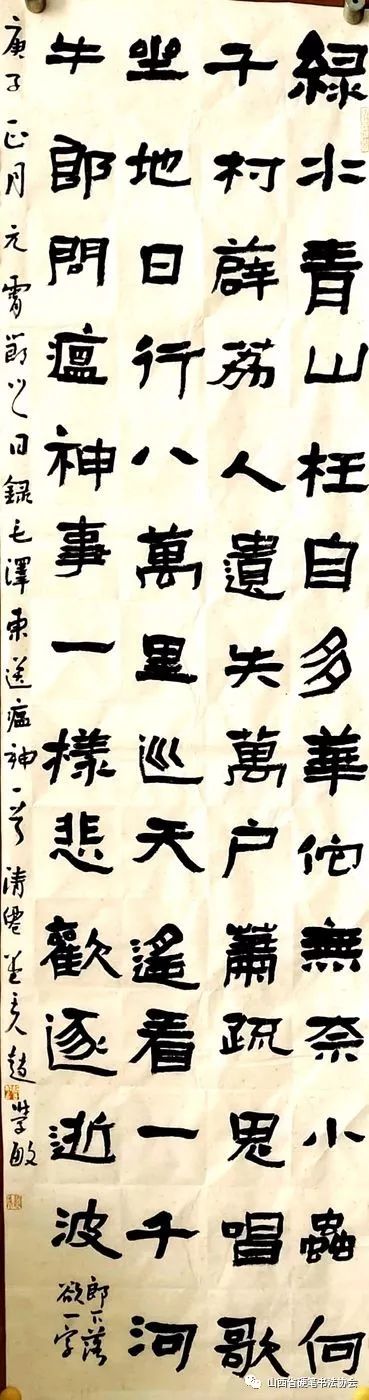 緑水青山枉自多華佗無奈小蟲何
千村薜荔人遺失萬户蕭疏鬼唱歌
坐地日行八萬里巡天遥看一千河
牛郎問瘟神事一樣悲歡逐逝波
郎下落
欲一字
庚子正月元宵節之日録毛澤東送瘟神一首
山西省硬笔书法协会